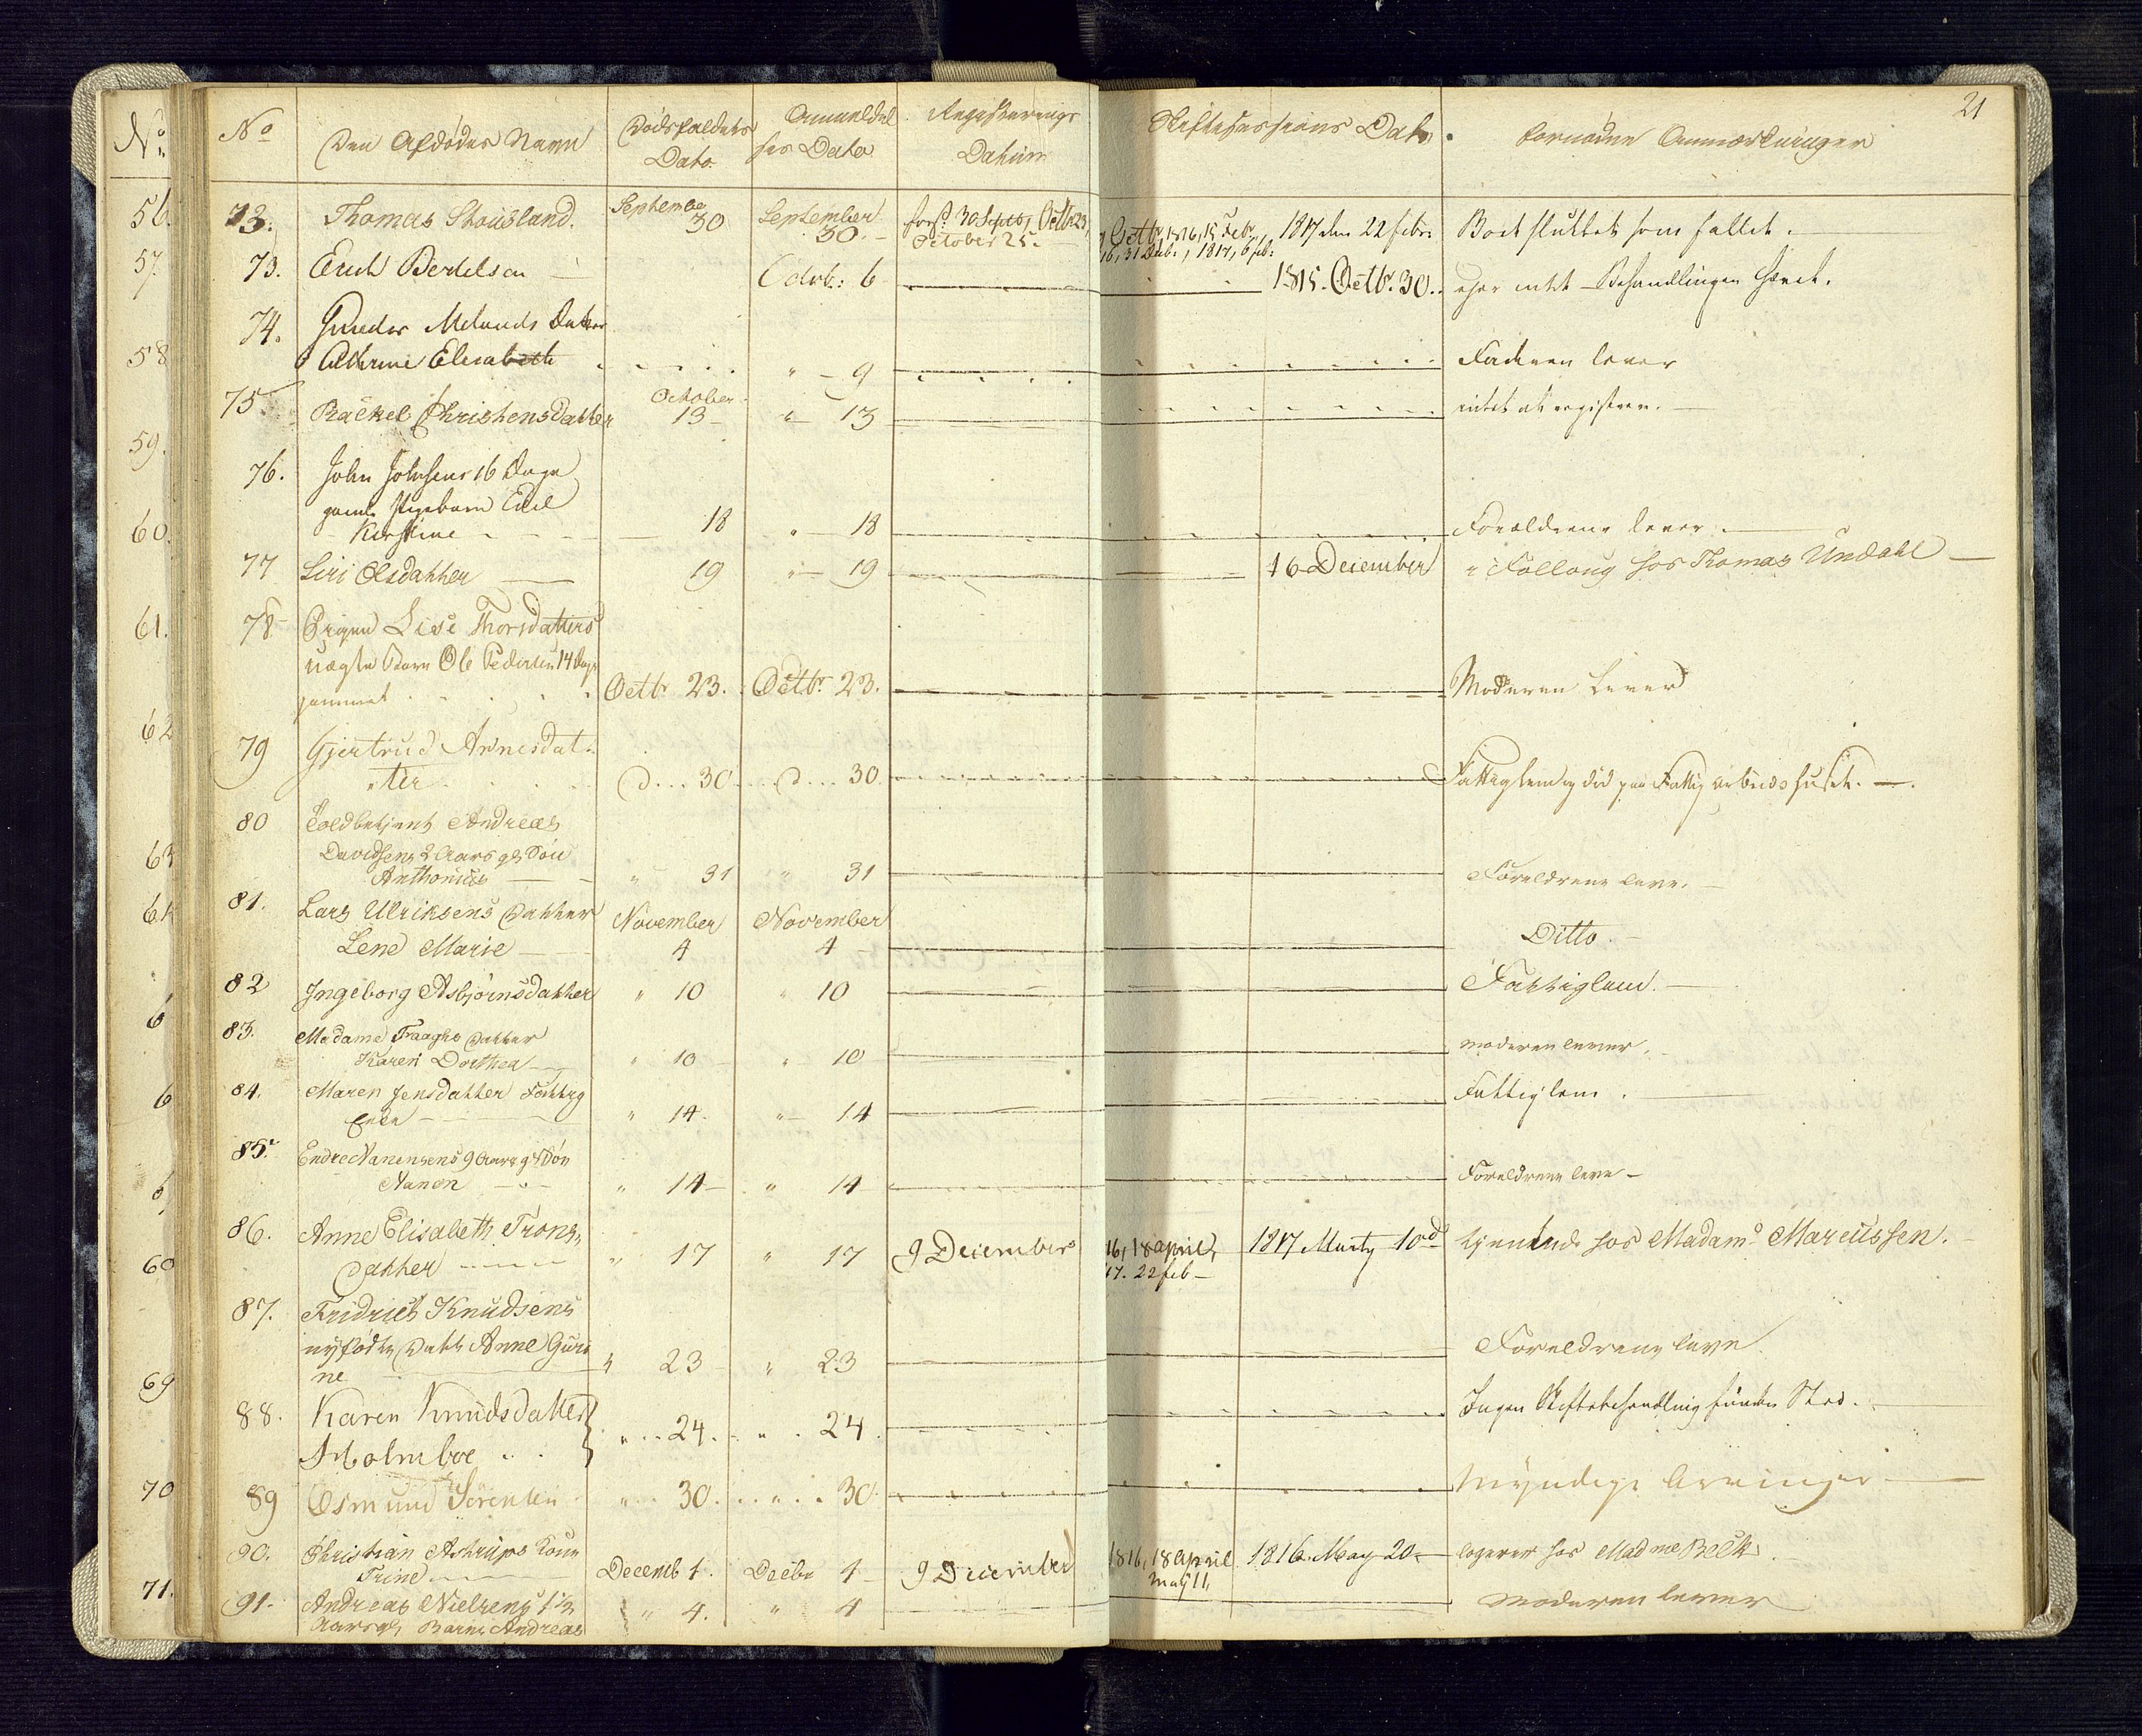 21
No
56.
57.
58
59.
60.
61.
62
63
6
6
6
60
69
70
71.
No Den Afdødes Navn Dødsfaldets Dato Anmeldelses Dato Registrerings Datum Skiftesessions Dato. Fornødne Anmærkninger
73. Thomas Stousland. September 30 September 30. forst 30 Septb, Octbr 23, October 25. 1817 den 22 febr: Boet sluttet som falлit.
16, 31 Decbr, 1817, 6 feb:
73. Erich Bertelsen Octob: 6 1815. Octbr. 30. ejer intet Behandlingen hævet.
74. Datter
Elisabeth " 9 Faderen lever
75 Rackel Christensdatter October 13 " 13 intet at registrere.
76. John Johnsens 16 Dage
gamle Pigebarn Edel
Kirstine 18 " 18 Forældrene lever.
77 Siri Olsdatter 19 " 19 16 December i Follaug hos Thomas Undahl
78 Pigen Lise Thorsdatters
uægte Barn Ole Pedersen 14 Dage
gammel Octbr 23. Octbr. 23. Moderen Lever
79 Gjertrud Arnesdat-
ter d... 30 d... 30 Fattiglem og død paa Fattig arbeidshuset.
80 Toldbetjent Andreas
Davidsens 2 Aars gl Søn
Anthonius " 31 " 31 Foreldrene leve.
81. Lars Ulriksens Datter November November
Lene Marie 4 4 Ditto.
82 Ingeborg Asbjörnsdatter " 10 " 10 Fattiglem.
83. Madame Datter
Karen Dorthea " 10 " 10 moderen lever.
84. Maren Jensdatter Fattig
Enke " 14. " 14 Fattiglem.
85. Endre Nanensens 9 Aars gl Søn
Nanen " 14 " 14 Foreldrene leve
86. Anne Elisabeth Trons-
datter " 17 " 17 9 December 16, 18 april, 1817 Marty 10d tjenende hos Madame Marcussen.
17. 22 feb
87. Fridrich Knudsens
nyfødte Datt Anne Guri
ne " 23 " 23 Foreldrene leve
88. Karen Knudsdatter
Holmboe " 24. " 24 Ingen Skiftebehandling finder Sted.
89 Osmund Sörensen " 30. " 30. Myndige Arvinger
90. Christian Astrups Kone
Trine Decemb 1. Decbr 1 9 December 1816, 18 april 1816. May 20 logerer hos Madme Beck
May 11,
91. Andreas Nielsens 1½
Aars gl Barn Andreas " 4. " 4 moderen lever